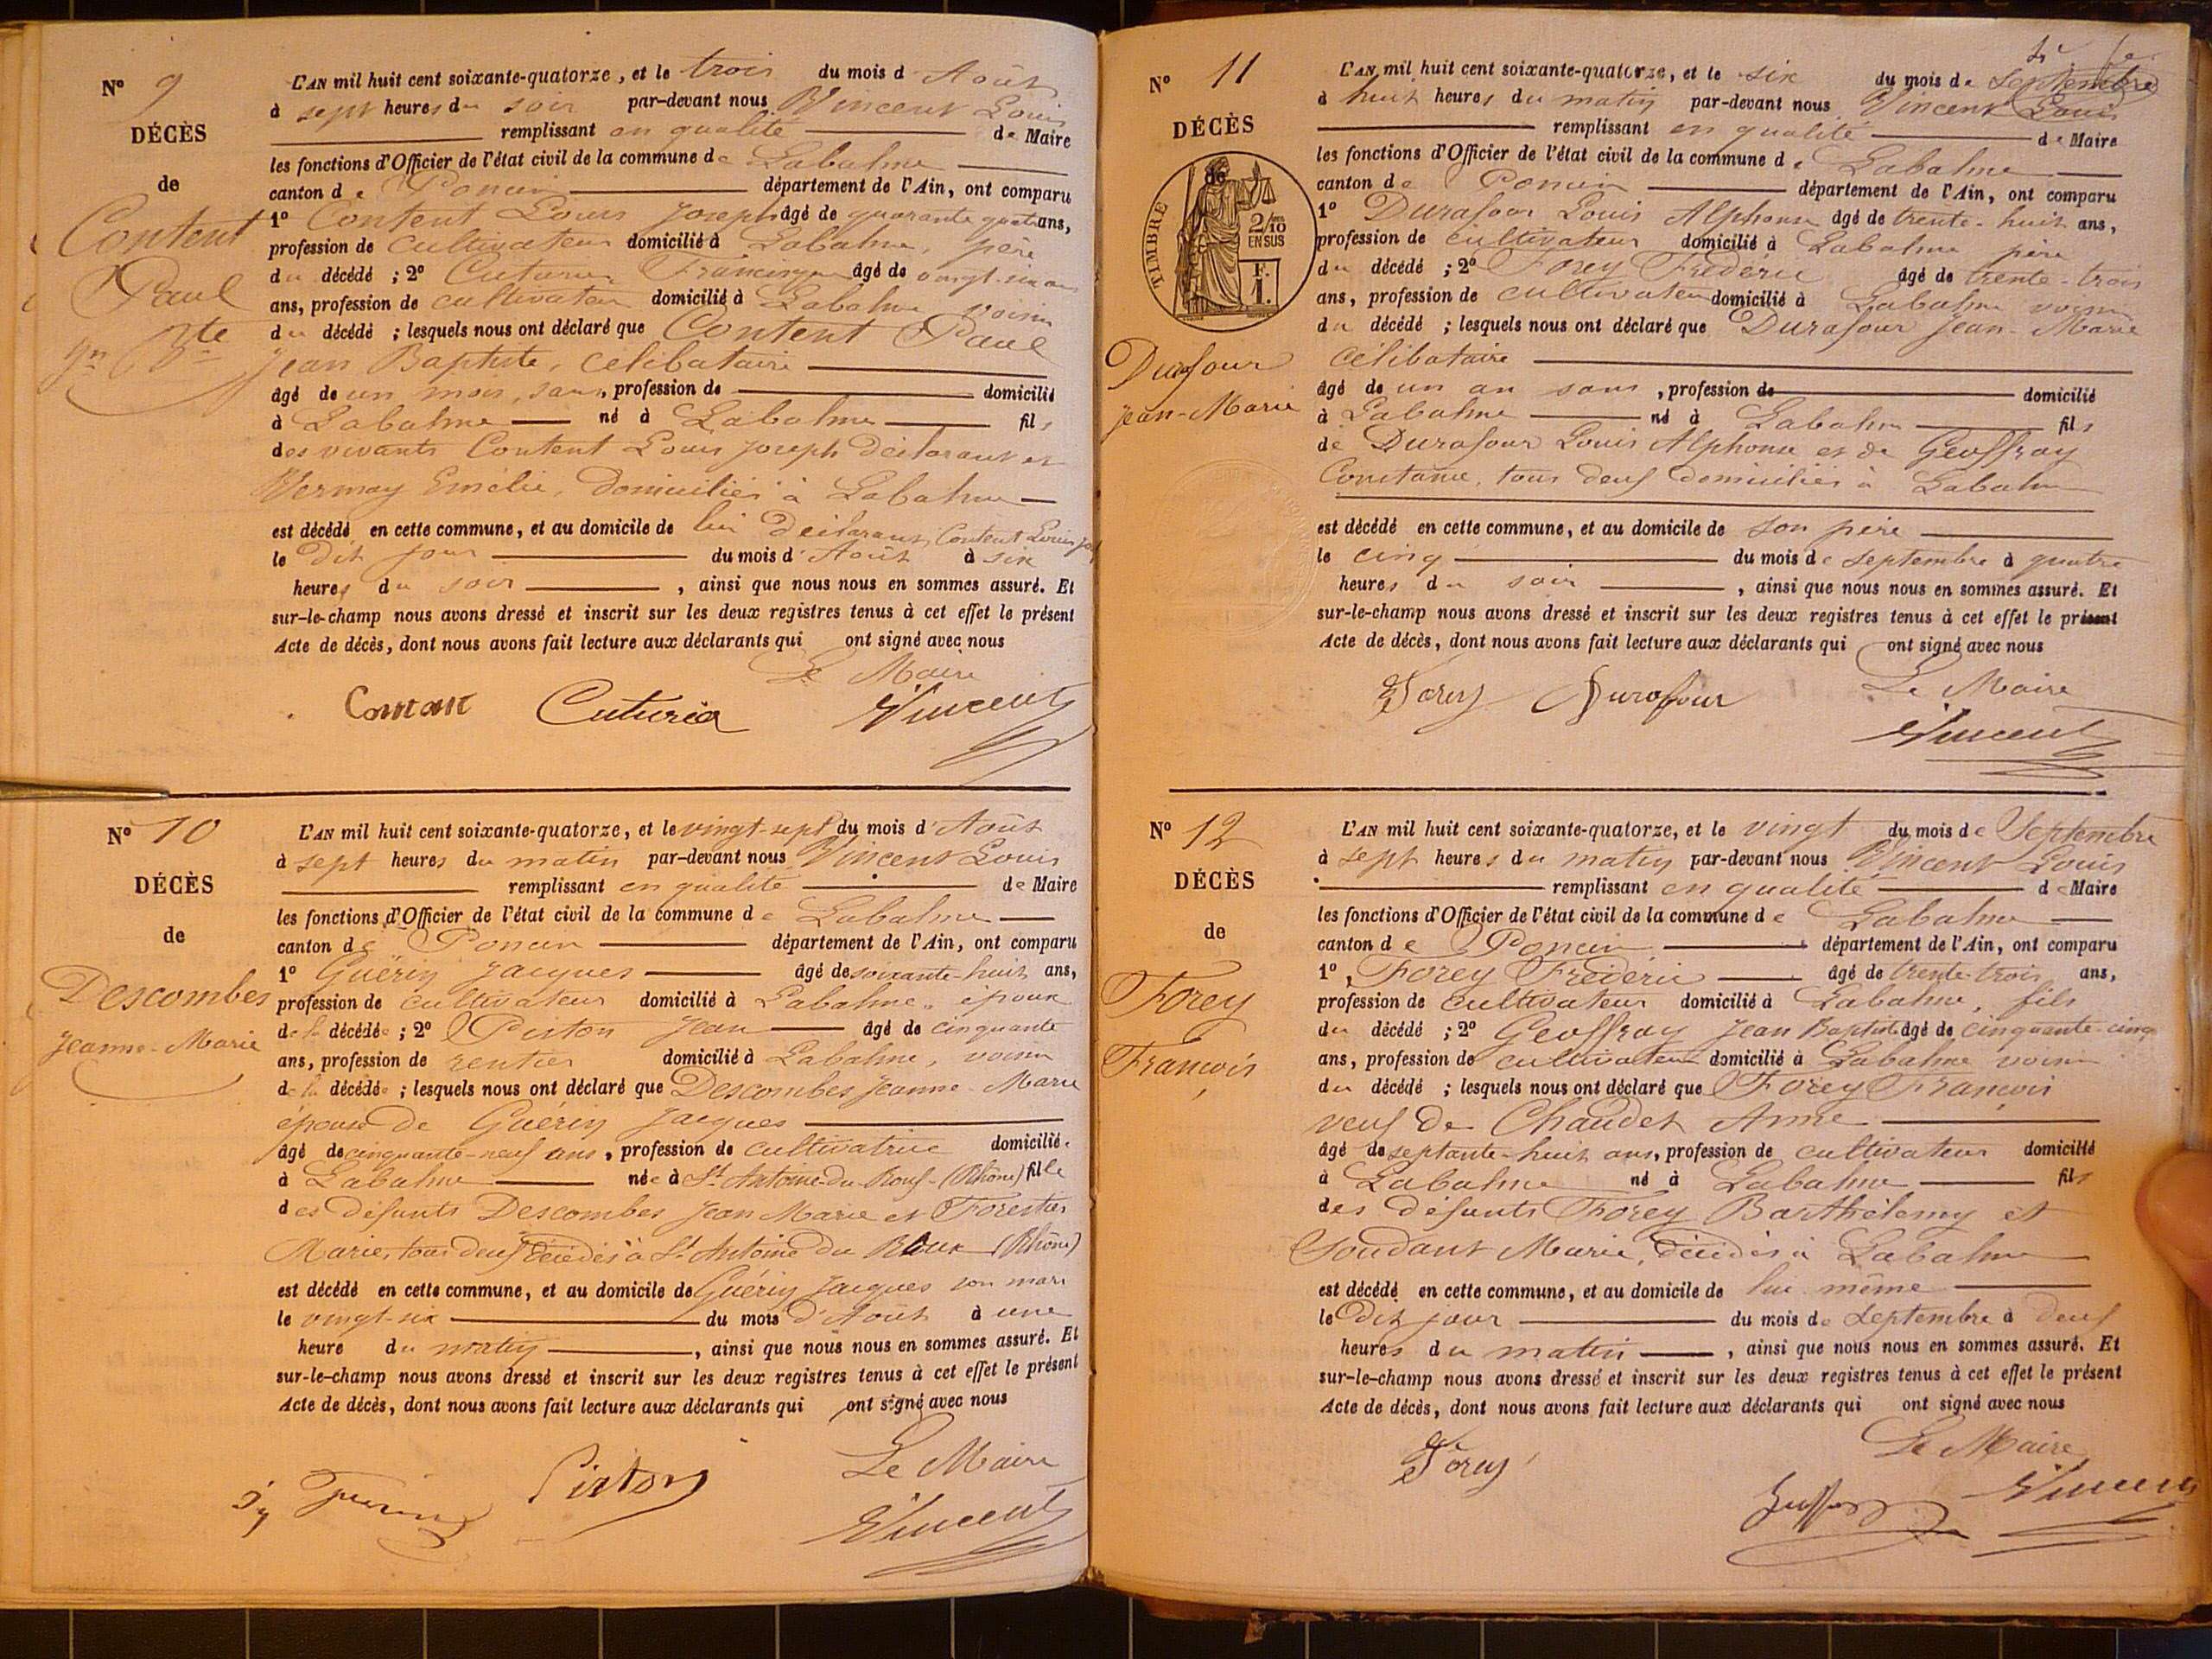 N° 9
DÉCÈS
de
Content
Paul
Jn Bte
L'AN mil huit cent soixante-quatorze, et le trois du mois d'Août
à sept heures du soir par-devant nous Vincent Louis
remplissant en qualité de Maire
les fonctions d'Officier de l'état civil de la commune de Labalme
canton de Poncin département de l'Ain, ont comparu
1° Content Louis Joseph âgé de quarante quatre ans,
profession de cultivateur domicilié à Labalme, père
du décédé ; 2° Cuturier Francisque âgé de vingt-six ans
ans, profession de cultivateur domicilié à Labalme voisin
du décédé ; lesquels nous ont déclaré que Content Paul
Jean Baptiste, célibataire
âgé de un mois, sans, profession de domicilié
à Labalme né à Labalme fils
des vivants Content Louis Joseph déclarant et
Vermay Emélie, domiciliés à Labalme
est décédé en cette commune, et au domicile de lui déclarant, Content Louis Jos
le dit jour du mois d'Août à six
heures du soir, ainsi que nous nous en sommes assuré. Et
sur-le-champ nous avons dressé et inscrit sur les deux registres tenus à cet effet le présent
Acte de décès, dont nous avons fait lecture aux déclarants qui ont signé avec nous
Le Maire
Content Cuturier Vincent
N° 10
DÉCÈS
de
Descombes
Jeanne-Marie
L'AN mil huit cent soixante-quatorze, et le vingt-sept du mois d'Août
à sept heures du matin par-devant nous Vincent Louis
remplissant en qualité de Maire
les fonctions d'Officier de l'état civil de la commune de Labalme
canton de Poncin département de l'Ain, ont comparu
1° Guérin Jacques âgé de soixante-huit ans,
profession de cultivateur domicilié à Labalme, époux
de la décédée ; 2° Piston Jean âgé de cinquante
ans, profession de rentier domicilié à Labalme, voisin
de la décédée ; lesquels nous ont déclaré que Descombes Jeanne-Marie
épouse de Guérin Jacques
âgé de cinquante-neuf ans, profession de cultivatrice domiciliée
à Labalme née à St Antoine-du-Rouf-(Rhône) fille
des défunts Descombes Jean Marie et Forestier
Marie, tous deux décédés à St Antoine du Roux (Rhône)
est décédé en cette commune, et au domicile de Guérin Jacques son mari
le vingt-six du mois d'Août à une
heure du matin, ainsi que nous nous en sommes assuré. Et
sur-le-champ nous avons dressé et inscrit sur les deux registres tenus à cet effet le présent
Acte de décès, dont nous avons fait lecture aux déclarants qui ont signé avec nous
Le Maire
Piston
Vincent
N° 11
DÉCÈS
TIMBRE
2/10
EN SUS
F.
1.
Durafour
Jean-Marie
L'AN mil huit cent soixante-quatorze, et le six du mois de Septembre
à huit heures du matin par-devant nous Vincent Louis
remplissant en qualité de Maire
les fonctions d'Officier de l'état civil de la commune de Labalme
canton de Poncin département de l'Ain, ont comparu
1° Durafour Louis Alphonse âgé de trente-huit ans,
profession de cultivateur domicilié à Labalme père
du décédé ; 2° Forey Frédéric âgé de trente-trois
ans, profession de cultivateur domicilié à Labalme voisin
du décédé ; lesquels nous ont déclaré que Durafour Jean-Marie
célibataire
âgé de un an sans, profession de domicilié
à Labalme né à Labalme fils
de Durafour Louis Alphonse et de Geoffray
Constance, tous deux domiciliés à Labalme
est décédé en cette commune, et au domicile de son père
le cinq du mois de septembre à quatre
heures du soir, ainsi que nous nous en sommes assuré. Et
sur-le-champ nous avons dressé et inscrit sur les deux registres tenus à cet effet le présent
Acte de décès, dont nous avons fait lecture aux déclarants qui ont signé avec nous
Forey Durafour Le Maire
Vincent
N° 12
DÉCÈS
de
Forey
François
L'AN mil huit cent soixante-quatorze, et le vingt du mois de Septembre
à sept heures du matin par-devant nous Vincent Louis
remplissant en qualité de Maire
les fonctions d'Officier de l'état civil de la commune de Labalme
canton de Poncin département de l'Ain, ont comparu
1° Forey Frédéric âgé de trente-trois ans,
profession de cultivateur domicilié à Labalme, fils
du décédé ; 2° Geoffray Jean Baptiste âgé de cinquante-cinq
ans, profession de cultivateur domicilié à Labalme voisin
du décédé ; lesquels nous ont déclaré que Forey François
veuf de Chaudet Anne
âgé de septante-huit ans, profession de cultivateur domicilié
à Labalme né à Labalme fils
des défunts Forey Barthélemy et
Soudant Marie, décédés à Labalme
est décédé en cette commune, et au domicile de lui même
le dit jour du mois de Septembre à deux
heures du matin, ainsi que nous nous en sommes assuré. Et
sur-le-champ nous avons dressé et inscrit sur les deux registres tenus à cet effet le présent
Acte de décès, dont nous avons fait lecture aux déclarants qui ont signé avec nous
Forey Le Maire
Geoffray Vincent